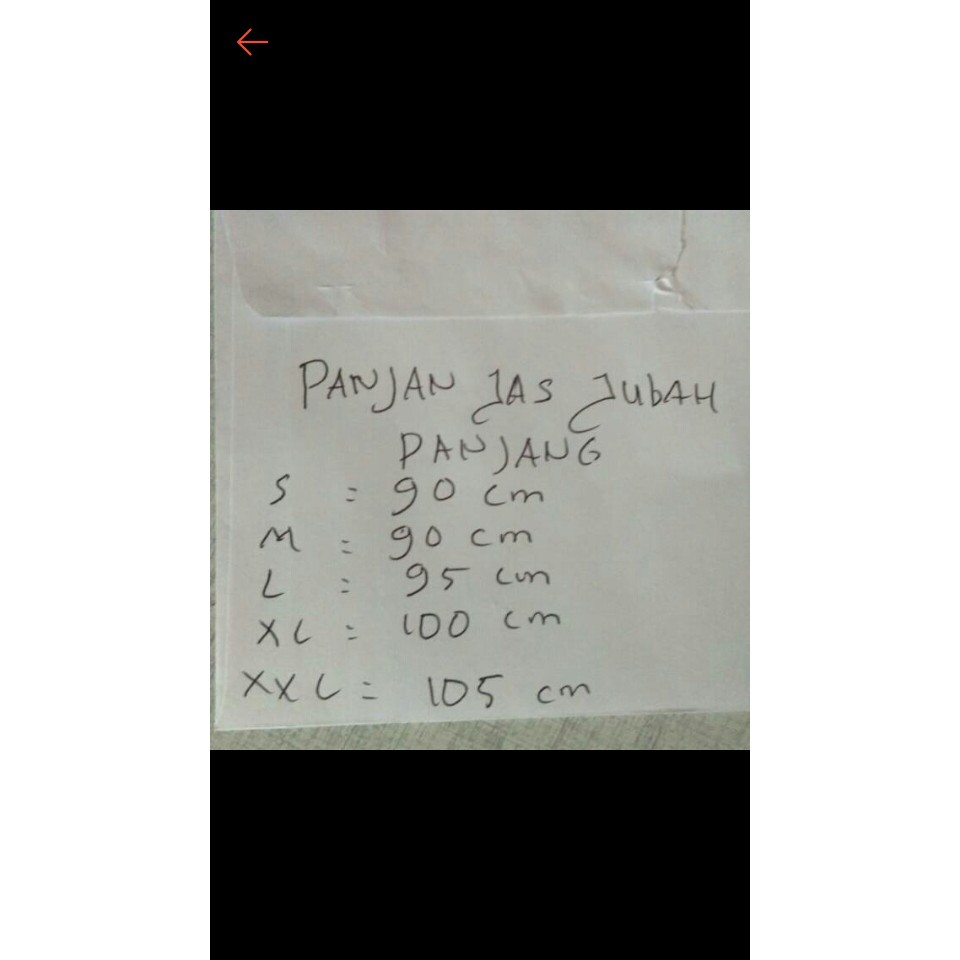 PANJAN JAS JUbAH
PANJANG
S = 90 cm
M = 90 cm
L = 95 cm
XL = 100 cm
XXL = 105 cm